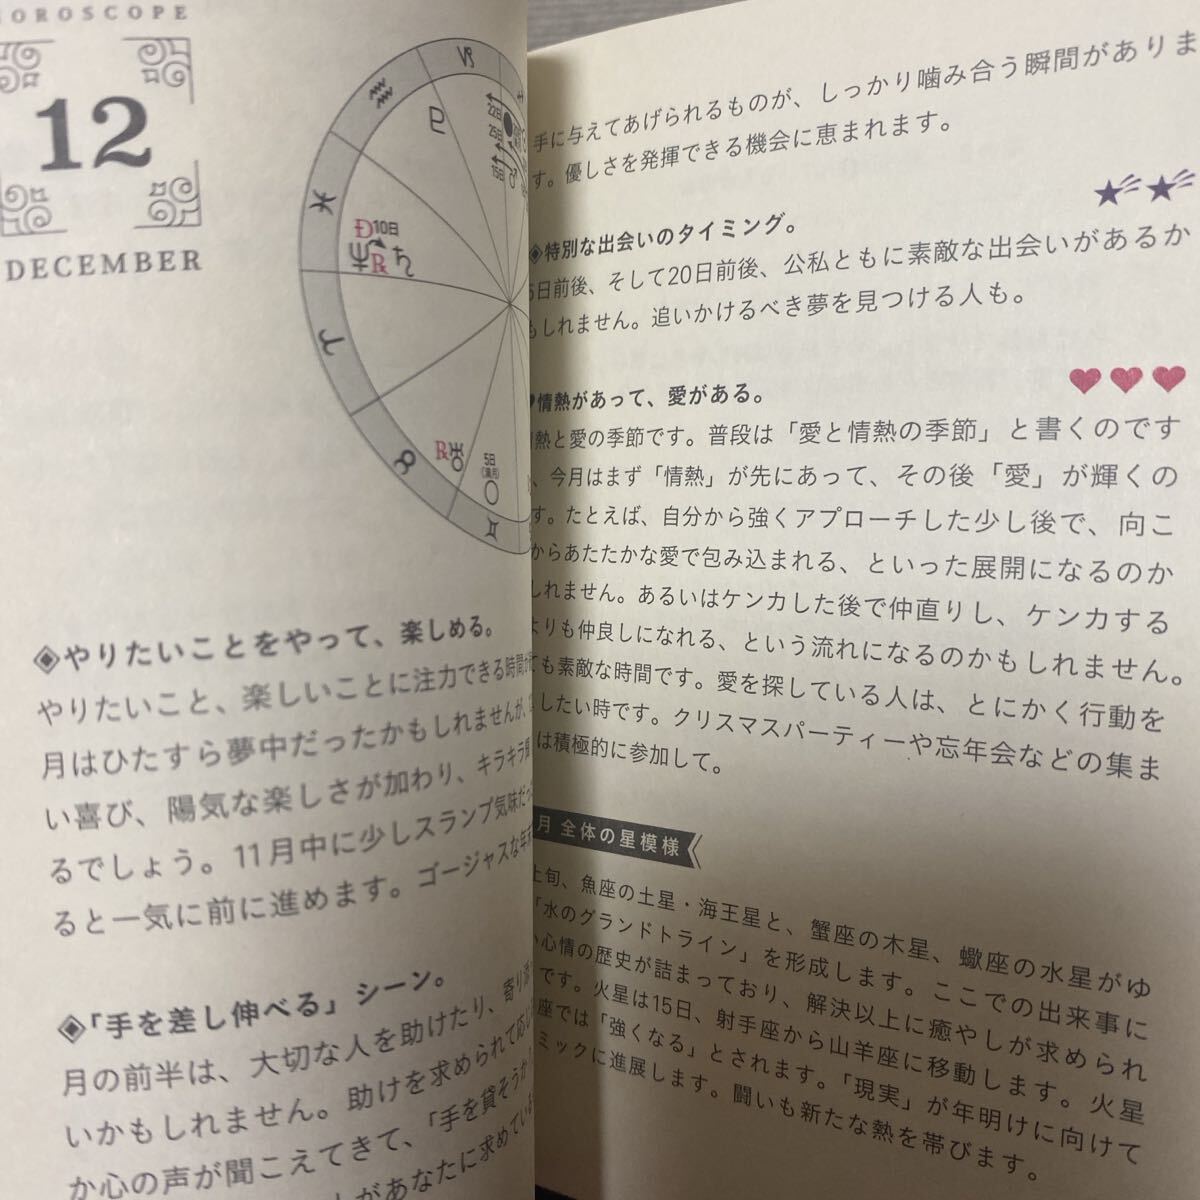 HOROSCOPE
12
DECEMBER
22日
25日
15日
10日
5日
(満月)
◈やりたいことをやって、楽しめる。
やりたいこと、楽しいことに注力できる時間が
月はひたすら夢中だったかもしれませんが、
い喜び、陽気な楽しさが加わり、キラキラ
るでしょう。11月中に少しスランプ気味だっ
ると一気に前に進めます。ゴージャスな年末
◈「手を差し伸べる」シーン。
月の前半は、大切な人を助けたり、寄り
いかもしれません。助けを求められて応じ
か心の声が聞こえてきて、「手を貸そうか
があなたに求めている
手に与えてあげられるものが、しっかり噛み合う瞬間がありま
す。優しさを発揮できる機会に恵まれます。
◈特別な出会いのタイミング。
5日前後、そして20日前後、公私ともに素敵な出会いがあるか
もしれません。追いかけるべき夢を見つける人も。
♥情熱があって、愛がある。
情熱と愛の季節です。普段は「愛と情熱の季節」と書くのです
、今月はまず「情熱」が先にあって、その後「愛」が輝くの
す。たとえば、自分から強くアプローチした少し後で、向こ
からあたたかな愛で包み込まれる、といった展開になるのか
しれません。あるいはケンカした後で仲直りし、ケンカする
よりも仲良しになれる、という流れになるのかもしれません。
ても素敵な時間です。愛を探している人は、とにかく行動を
したい時です。クリスマスパーティーや忘年会などの集ま
は積極的に参加して。
月 全体の星模様
上旬、魚座の土星・海王星と、蟹座の木星、蠍座の水星がゆ
「水のグランドトライン」を形成します。ここでの出来事に
い心情の歴史が詰まっており、解決以上に癒やしが求められ
です。火星は15日、射手座から山羊座に移動します。火星
座では「強くなる」とされます。「現実」が年明けに向けて
ミックに進展します。闘いも新たな熱を帯びます。